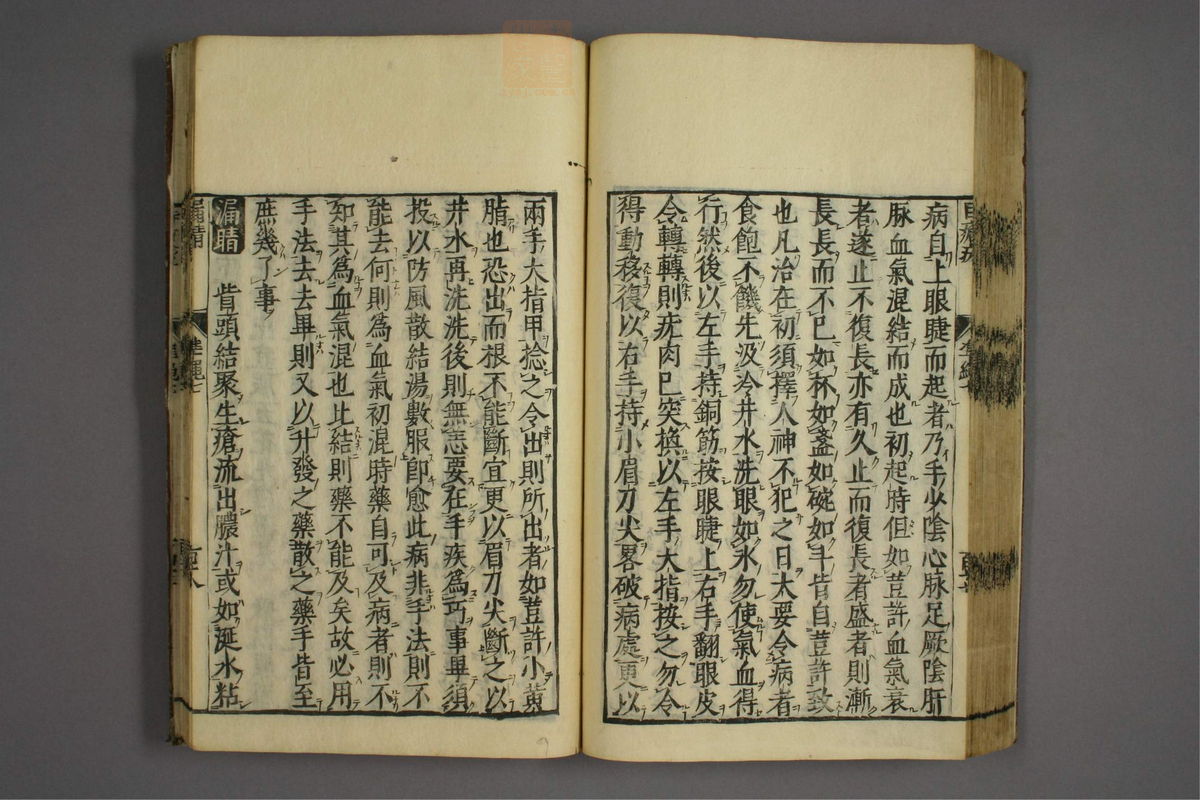 病自上眼睫而起者乃手少陰心脉足厥陰肝
脉血氣混結而成也初起時但如荳許血氣衰
者遂止不復長亦有久止而復長者盛者則漸
長長而不已如杯如盞如碗如斗皆自荳許致
也凡治在初須擇人神不犯之日大要令病者
食飽不饑先汲冷井水洗眼如氷勿使氣血得
行然後以左手持銅筯按眼睫上右手翻眼皮
令轉轉則疣肉已突換以左手大指按之勿令
得動移復以右手持小眉刀尖畧破病處更以
兩手大指甲捻之令出則所出者如荳許小黄
脂也恐出而根不能斷宜更以眉刀尖斷之以
井水再洗洗後則無恙要在手疾爲巧事畢須
投以防風散結湯數服卽愈此病非手法則不
能去何則為血氣初混時藥自可及病者則不
知其爲血氣混也比結則藥不能及矣故必用
手法去去畢則又以升發之藥散之藥手皆至
庶幾了事
漏睛 眥頭結聚生瘡流出膿汁或如涎水粘
漏睛